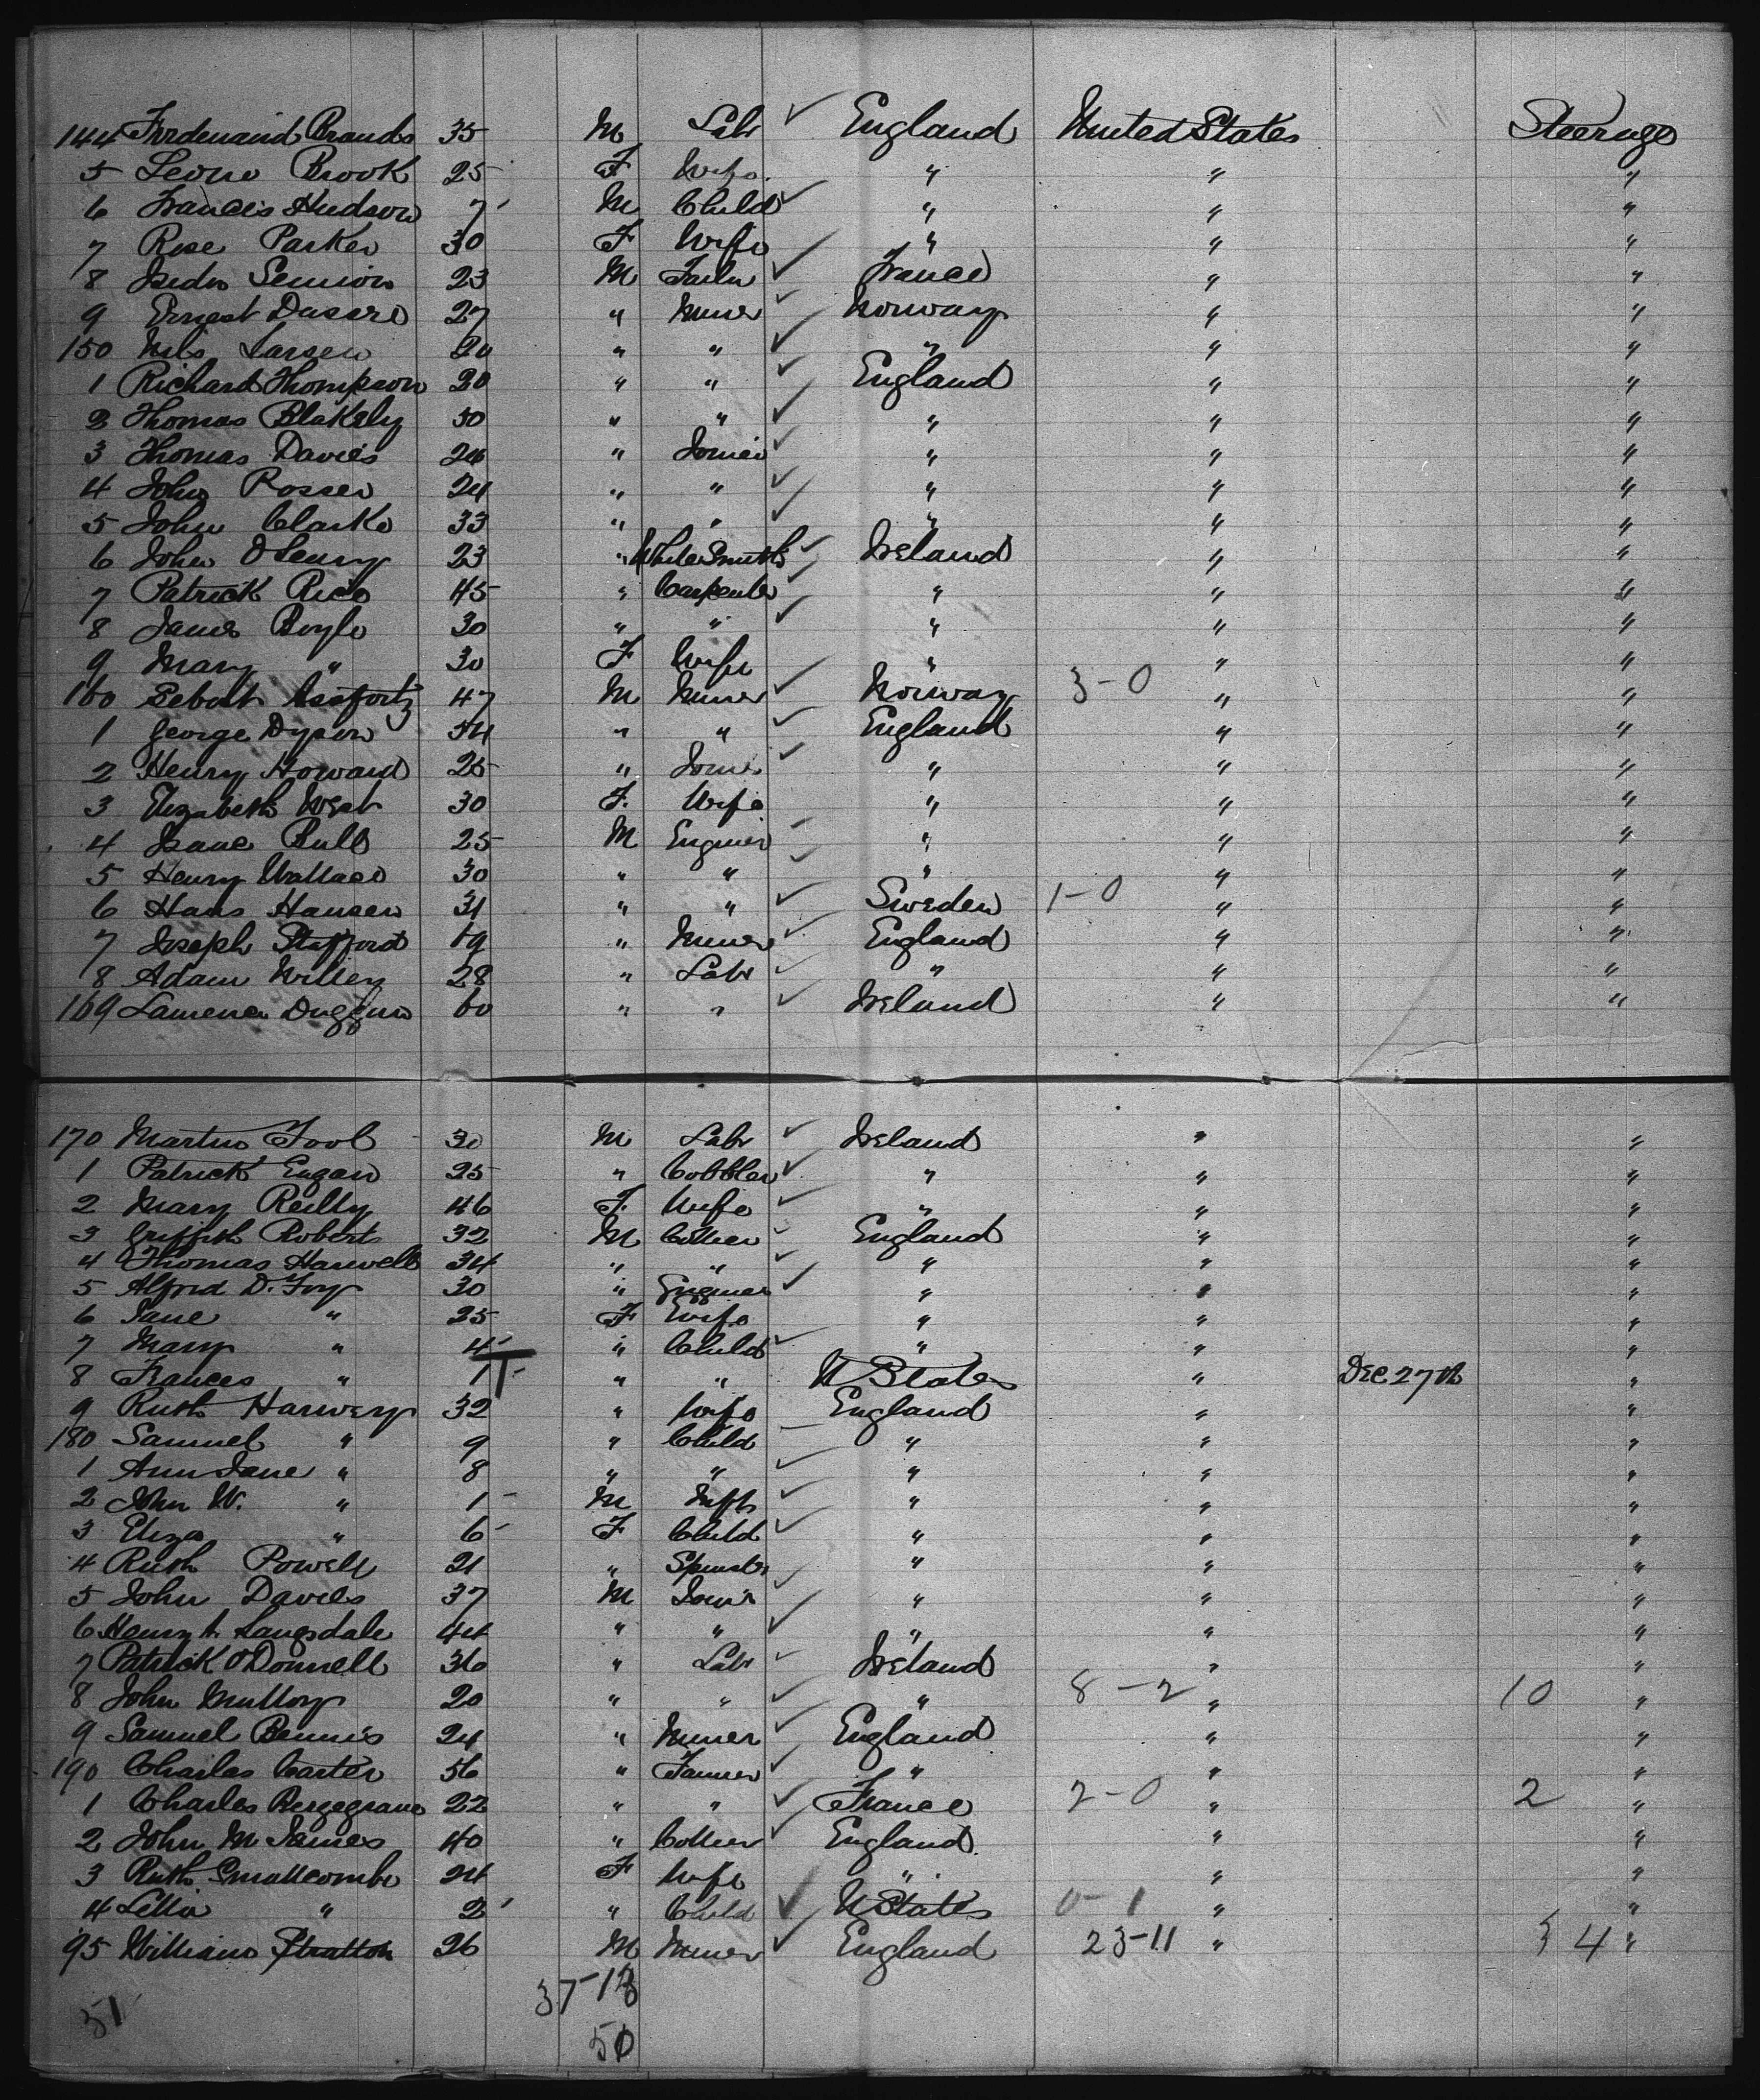 144 Ferdenand Brands 35 M Labr ✓ England United States Steerage
5 Leono Brook 25 F Wife " " "
6 Francis Hudson 7 M Child ✓ " " "
7 Rose Parker 30 F Wife " " "
8 23 M ✓ France " "
9 Ernest 27 " Miner ✓ Norway " "
150 Nils Larsen " " ✓ " " "
1 Richard Thompson 20 " " ✓ England " "
2 Thomas Blakely 50 " " ✓ " " "
3 Thomas Davies 24 " Joiner ✓ " " "
4 John Rosser 24 " " ✓ " " "
5 John Clarke 33 " " ✓ " " "
6 John 23 " White Smith ✓ Ireland " "
7 Patrick Rice 45 " Carpenter ✓ " " "
8 James Boyle 30 " " ✓ " " "
9 Mary " 30 F Wife " " "
160 47 M Miner ✓ Norway 3-0 " "
1 George Dyson 54 " " ✓ England " "
2 Henry Howard 25 " Joiner ✓ " " "
3 Elizabeth West 30 F. Wife " " "
4 Isaac Bull 25 M Engineer ✓ " " "
5 Henry Wallace 30 " " ✓ " " "
6 Hans Hansen 31 " " ✓ Sweden 1-0 " "
7 Joseph Stafford 19 " Miner ✓ England " "
8 Adam Willey 28 " Labr ✓ " " "
169 Lawrence Duggan 60 " " ✓ Ireland " "
170 Martin Tool 30 M Labr ✓ Ireland " "
1 Patrick Eagan 25 " Cobbler ✓ " " "
2 Mary Reilly 46 F. Wife ✓ " " "
3 Griffith Robert 32 M Collier ✓ England " "
4 Thomas Harwell 34 " " ✓ " " "
5 Alfred D. Foy 30 " Engineer ✓ " " "
6 Jane " 25 F Wife " " "
7 Mary " 4 " Child ✓ " " "
8 Frances " 1 " " U States " Dec 27th "
9 Ruth Harwery 32 " Wife England " "
180 Samuel " 9 " Child " " "
1 Ann Jane " 8 " " ✓ " " "
2 John W. " 1 M Inft ✓ " " "
3 Eliza " 6 F Child ✓ " " "
4 Ruth Powell 21 " Spinster " " "
5 John Davies 37 M Joiner ✓ " " "
6 Henry Langsdale 44 " " ✓ " " "
7 Patrick O'Donnell 36 " Labr ✓ Ireland " "
8 John Mulloy 20 " " ✓ " 8-2 " 10 "
9 Samuel Bennis 24 " Miner ✓ England " "
190 Charles Carter 56 " Farmer ✓ " " "
1 Charles 22 " " ✓ France 2-0 " 2 "
2 John M James 40 " Collier ✓ England " "
3 Ruth Smallcombe 24 F Wife " " "
4 Lillia " 2 " Child ✓ U States 0-1 " "
95 William Stratton 26 M Miner ✓ England 23-11 " 34 "
37-13
51 50